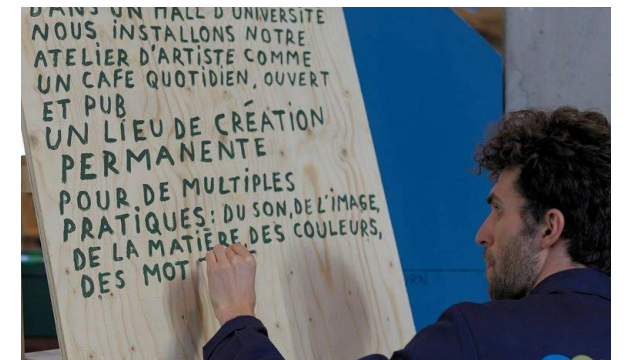 DANS UN HALL D'UNIVERSITÉ
NOUS INSTALLONS NOTRE
ATELIER D'ARTISTE COMME
UN CAFE QUOTIDIEN, OUVERT
ET PUB
UN LIEU DE CRÉATION
PERMANENTE
POUR DE MULTIPLES
PRATIQUES: DU SON, DE L'IMAGE,
DE LA MATIÈRE, DES COULEURS,
DES MOT